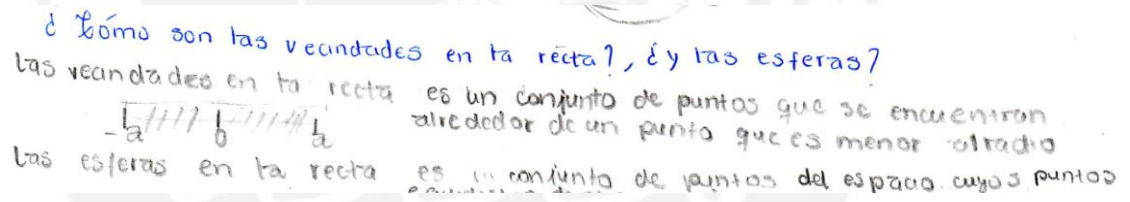 ¿Cómo son las vecindades en la recta?, ¿y las esferas?
las vecindades en la recta es un conjunto de puntos que se encuentran
alrededor de un punto que es menor al radio
-a b a
Las esferas en la recta es un conjunto de puntos del espacio cuyos puntos